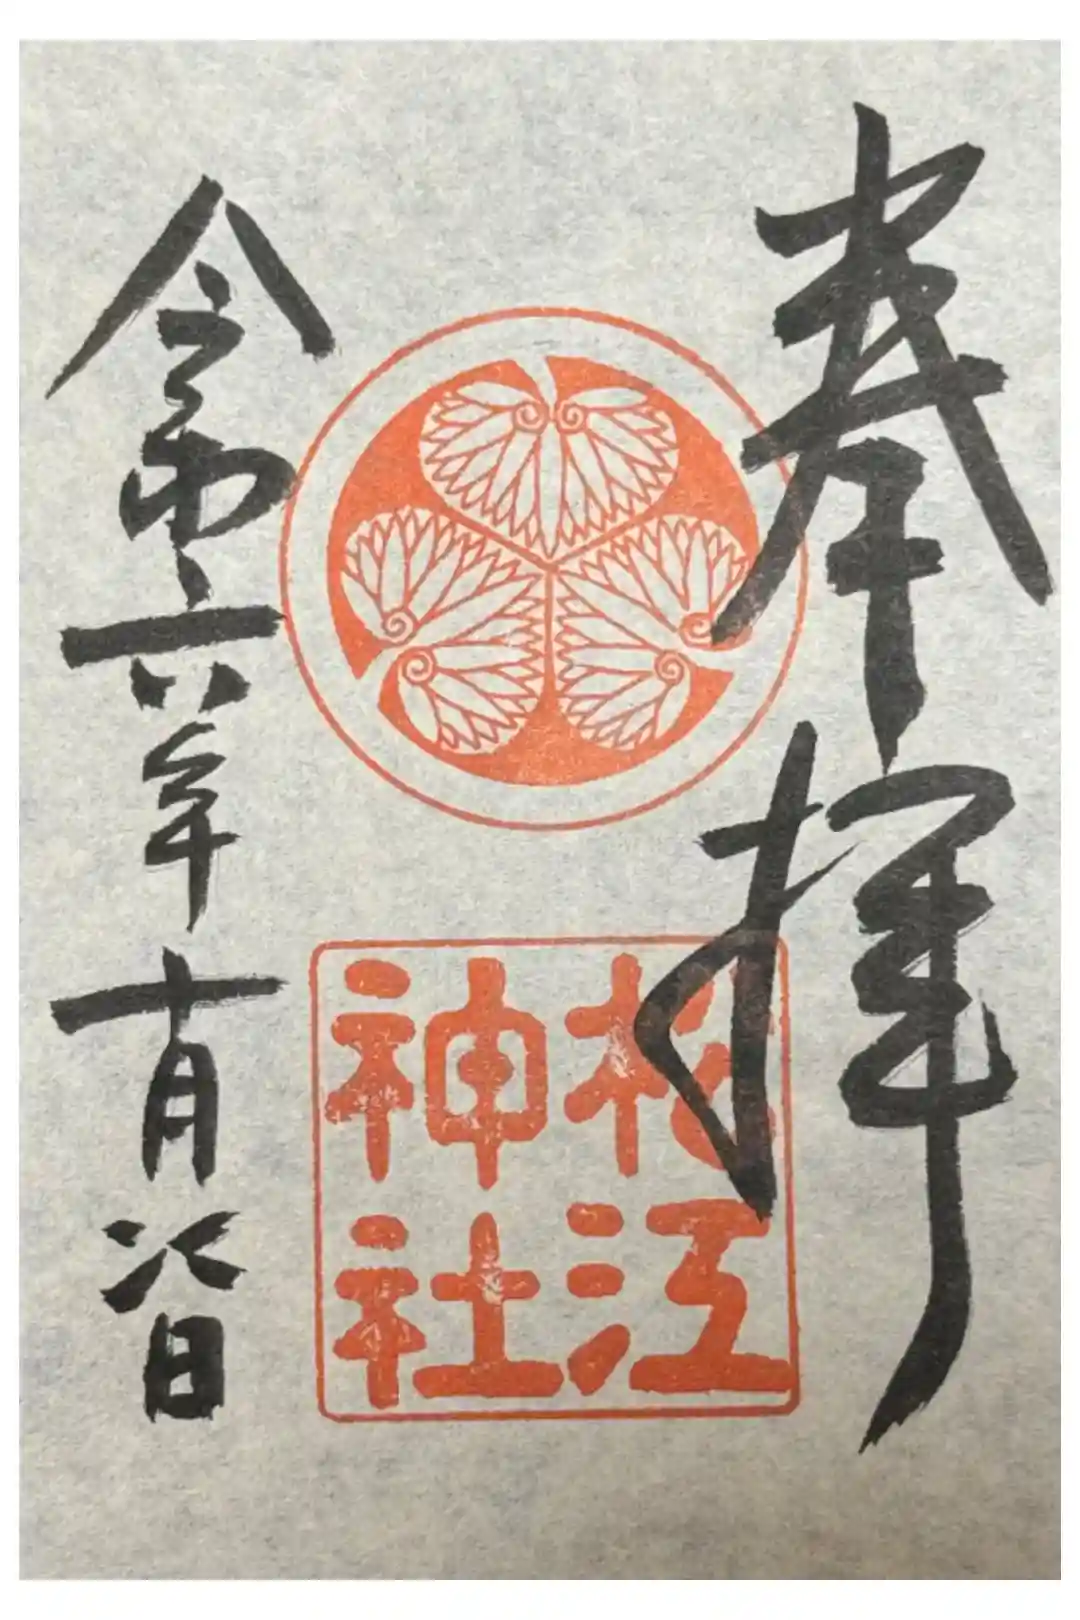 奉拝
松江
神社
令和六年十月八日